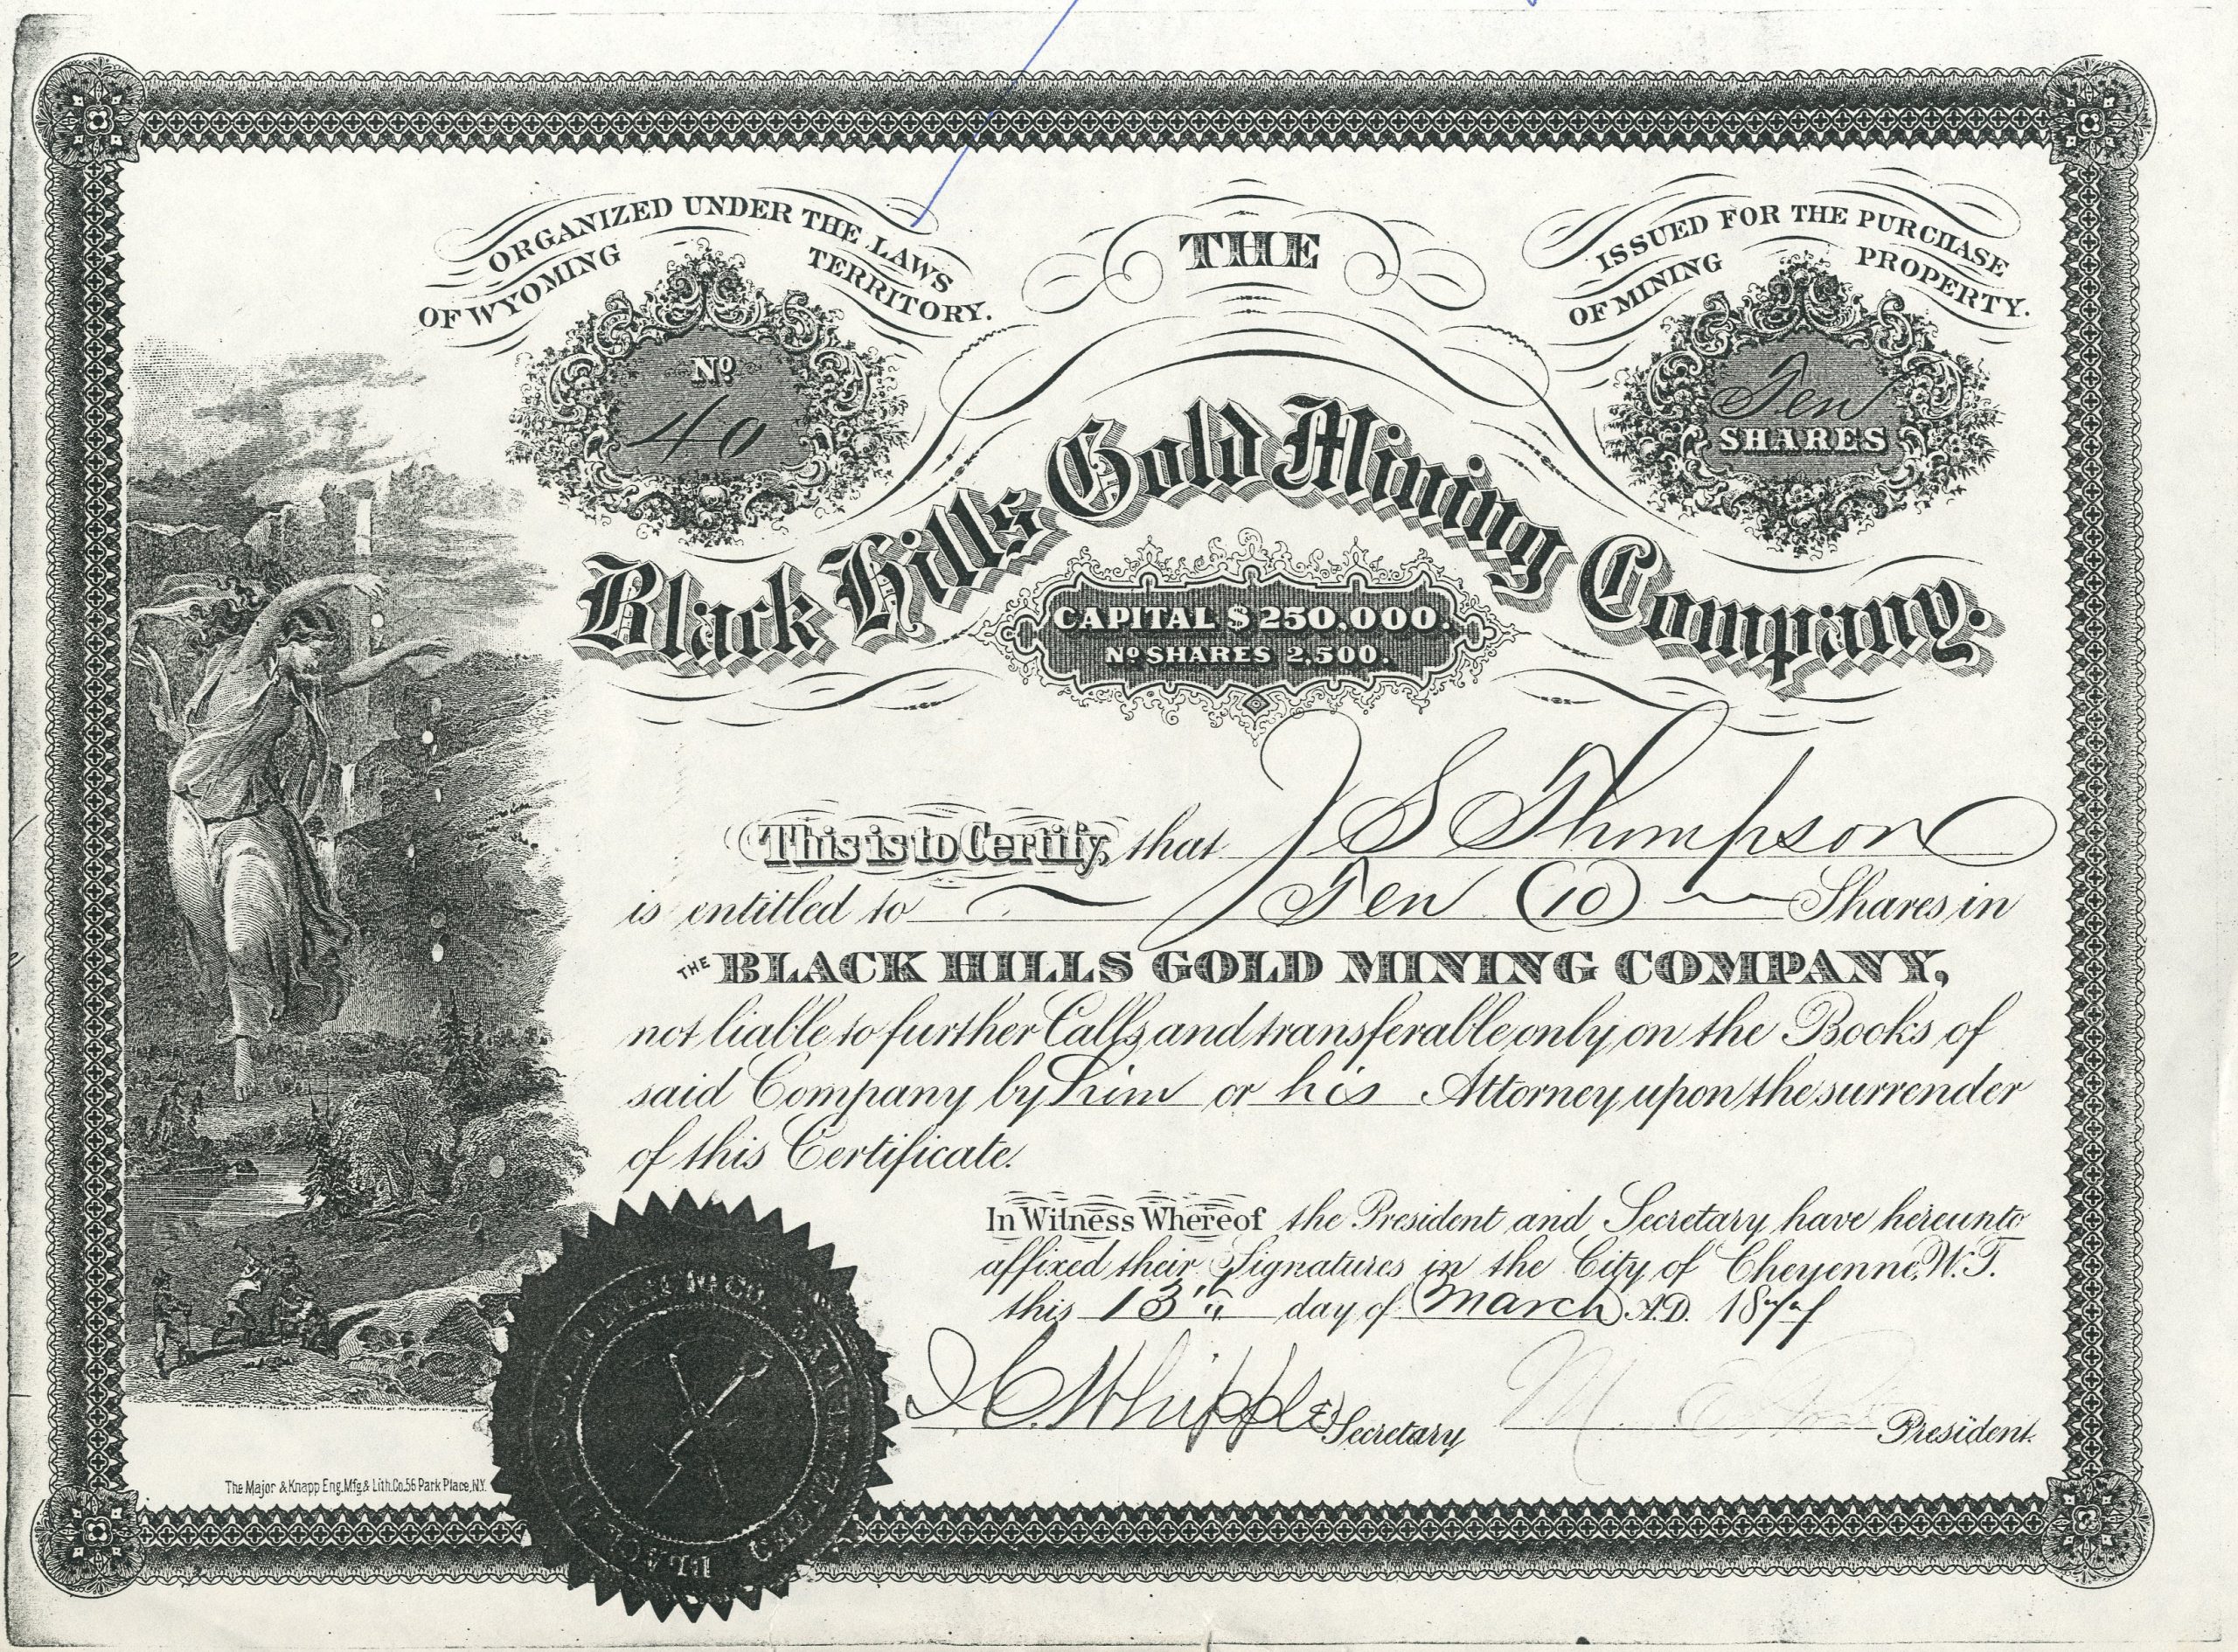 ORGANIZED UNDER THE LAWS
OF WYOMING TERRITORY.
No
40
THE
ISSUED FOR THE PURCHASE
OF MINING PROPERTY.
Ten
SHARES
Black Hills Gold Mining Company.
CAPITAL $250,000.
No SHARES 2,500.
This is to Certify, that J S Thompson
is entitled to Ten (10) Shares in
THE BLACK HILLS GOLD MINING COMPANY,
not liable to further Calls, and transferable only on the Books of
said Company by him or his Attorney upon the surrender
of this Certificate.
In Witness Whereof the President and Secretary have hereunto
affixed their Signatures in the City of Cheyenne, W.T.
this 13th day of March A.D. 1877
I C Whipple Secretary
M. E. President.
The Major & Knapp Eng. Mfg & Lith. Co. 56 Park Place, N.Y.